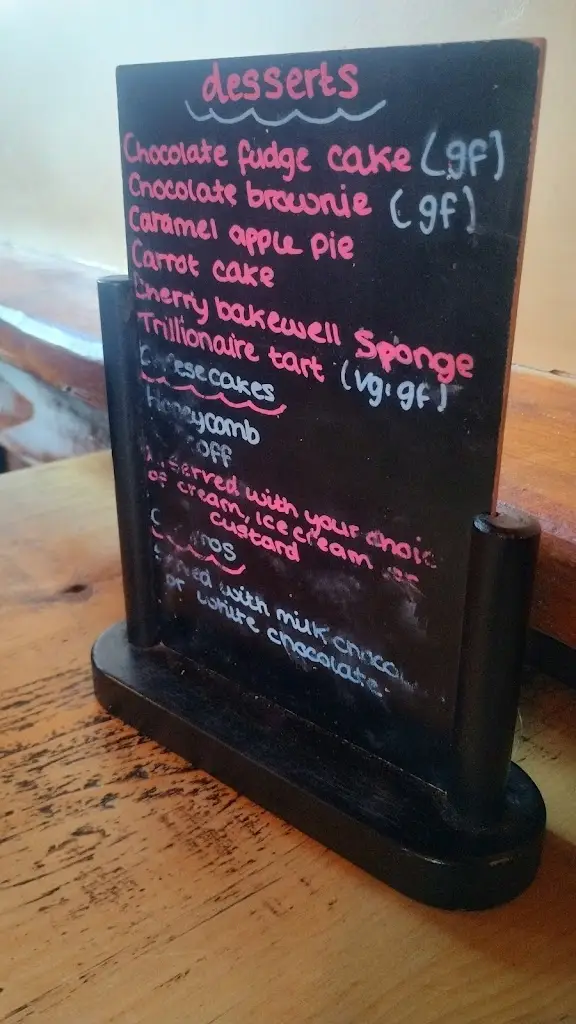 desserts
Chocolate fudge cake (gf)
Chocolate brownie (gf)
Caramel apple pie
Carrot cake
Cherry bakewell Sponge
Trillionaire tart (vg, gf)
Cheesecakes
Honeycomb
served with your choice
of cream, ice cream or
custard
served with milk
or white chocolate